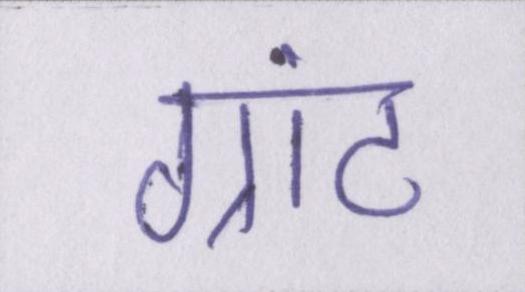 ग्रांट